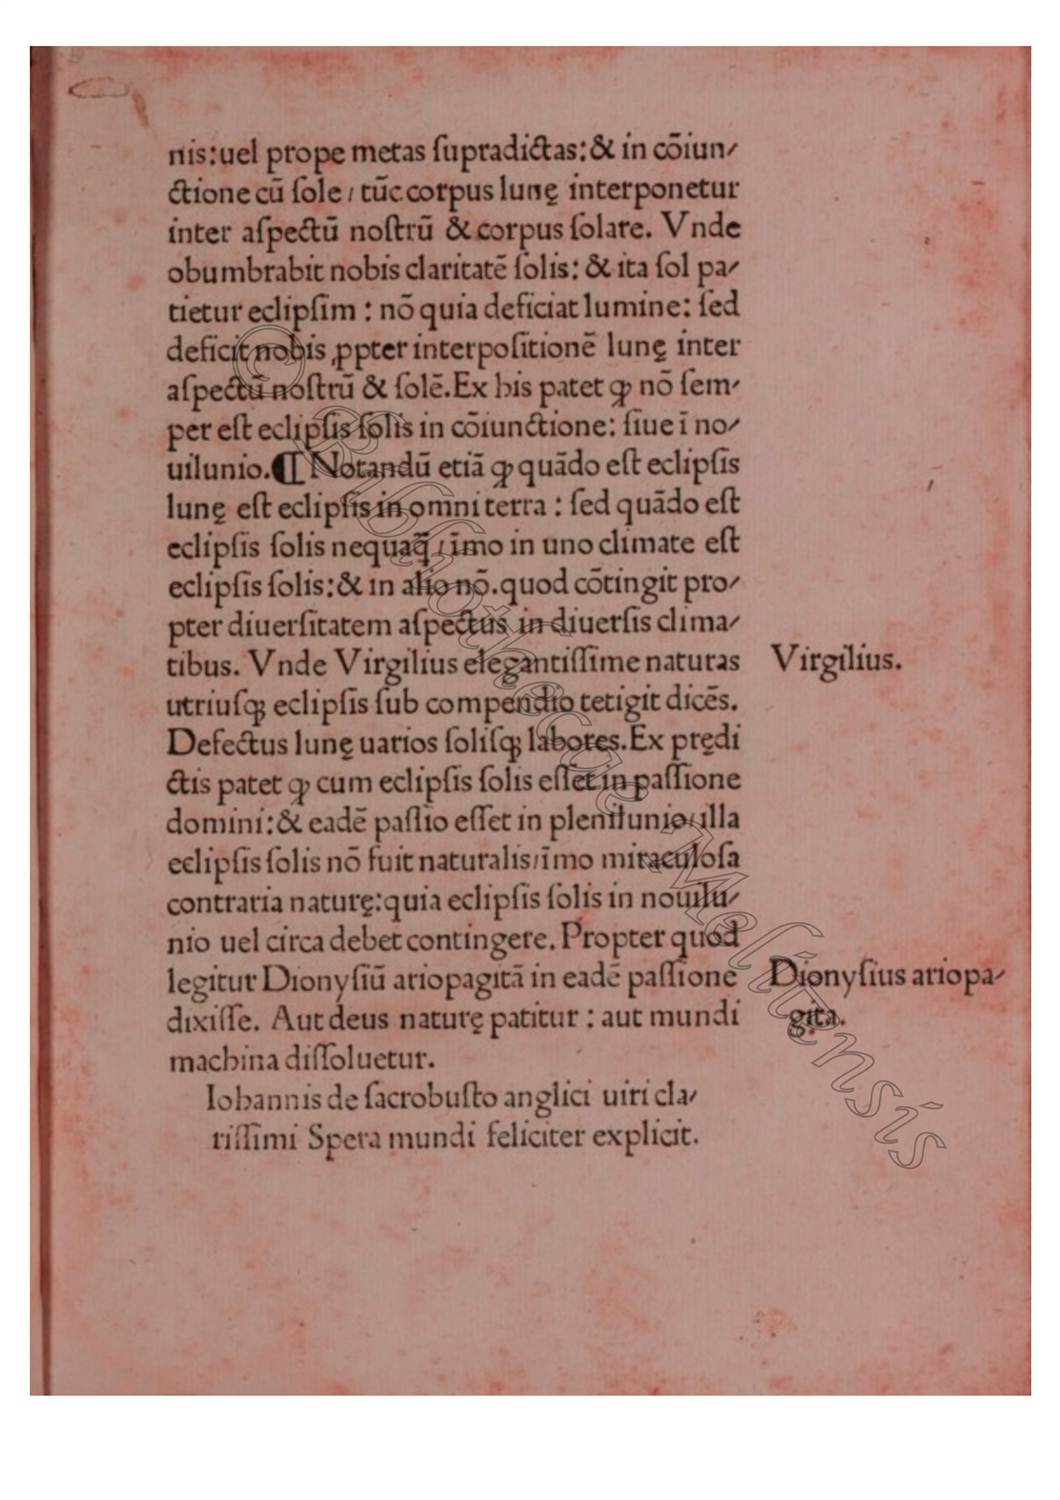 nis:uel prope metas ſupradictas:& in cōiun⸗
ctione cū ſole/tūc corpus lunę interponetur
inter aſpectū noſtrū & corpus ſolare. Vnde
obumbrabit nobis claritatē ſolis: & ita ſol pa⸗
tietur eclipſim : nō quia deficiat lumine: ſed
deficit nobis ꝓpter interpoſitionē lunę inter
aſpectū noſtrū & ſolē.Ex his patet ꝙ nō ſem⸗
per eſt eclipſis ſolis in cōiunctione: ſiue ī no⸗
uilunio.¶ Notandū etiā ꝙ quādo eſt eclipſis
lunę eſt eclipſis in omni terra : ſed quādo eſt
eclipſis ſolis nequaq̄/īmo in uno climate eſt
eclipſis ſolis:& in alio nō.quod cōtingit pro⸗
pter diuerſitatem aſpectus in diuerſis clima⸗
tibus. Vnde Virgilius elegantiſſime naturas
Virgilius.
utriuſqꝫ eclipſis ſub compendio tetigit dicēs.
Defectus lunę uarios ſoliſqꝫ labores.Ex prędi
ctis patet ꝙ cum eclipſis ſolis eſſet in paſſione
domini:& eadē paſſio eſſet in plenilunio/illa
eclipſis ſolis nō fuit naturalis/īmo miraculoſa
contraria naturę:quia eclipſis ſolis in nouilu⸗
nio uel circa debet contingere. Propter quod
legitur Dionyſiū ariopagitā in eadē paſſione
Dionyſius ariopa⸗
dixiſſe. Aut deus naturę patitur : aut mundi
gita.
machina diſſoluetur.
Iohannis de ſacrobuſto anglici uiri cla⸗
riſſimi Spera mundi feliciter explicit.
© Bibliothecae Melitensis